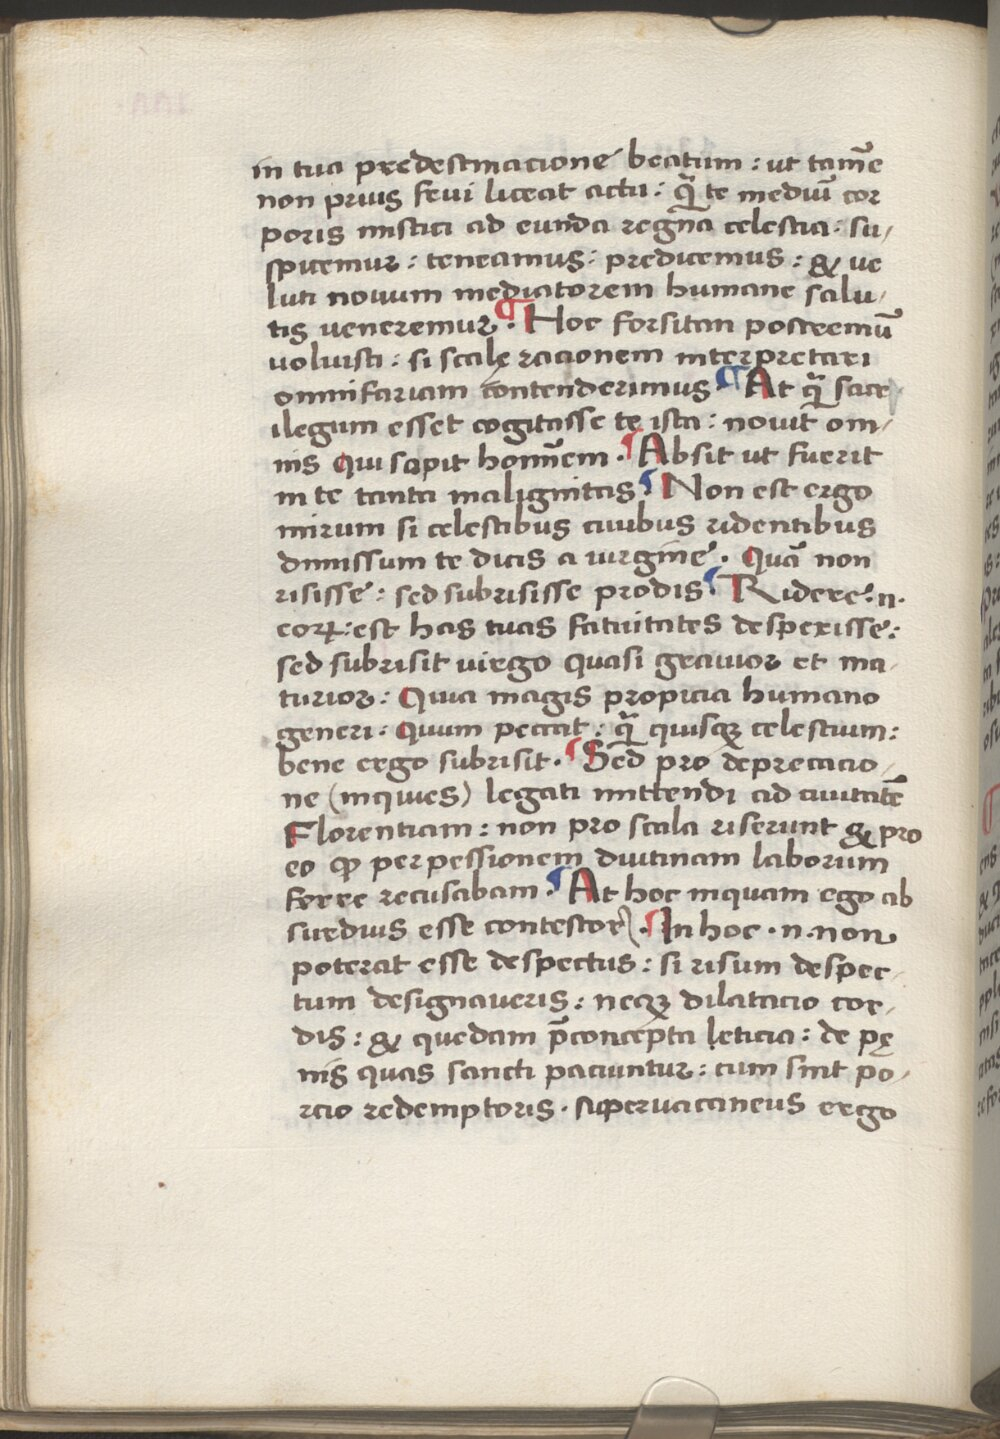 in tua predestinacione beatum : ut tamē
non prius sevi liceat actu : qͣ te mediuī cor
poris mistici ad eunda regna celestia : su/
spicemur : teneamus : predicemus : & ue
luti nouum mediatorem humane salu/
tis ueneremur . ¶ Hoc forsitan postremū
voluisti : si scalę racionem interpretari
omnifariam contenderimus . ¶ At qͣ sacr
ilegum esset cogitasse te ista : nouit om/
nis qui sapit homīnem . ¶ Absit ut fuerit
in te tanta malignitas ¶ Non est ergo
mirum si celestibus ciuibus ridentibus
dimissum te dicis a uirgine . Quā non
risisse : sed subrisisse prodis ¶ Ridere .n.
eoꝝ : est has tuas fatuitates despexisse :
sed subrisit uirgo quasi grauior et ma/
turior : Quia magis propicia humano
generi . Quum peccat : qͣ quisqꝫ celestium :
bene ergo subrisit . ¶ Sed pro deprecacio/
ne (inquies) legati mittendi ad ciuitatē
Florentiam : non pro scala riserunt & pro
eo qꝫ perpessionem diutinam laborum
ferre recusabam . ¶ At hoc inquam ego ab
surdius esse contestor . ¶ In hoc . n . non
poterat esse despectus : si risum despec/
tum designaueris : neqꝫ dilatacio cor/
dis : & quedam p̄concepta leticia : de pę
nis quas sancti paciuntur : cum sint po/
rcio redemptoris . supervacaneus ergo